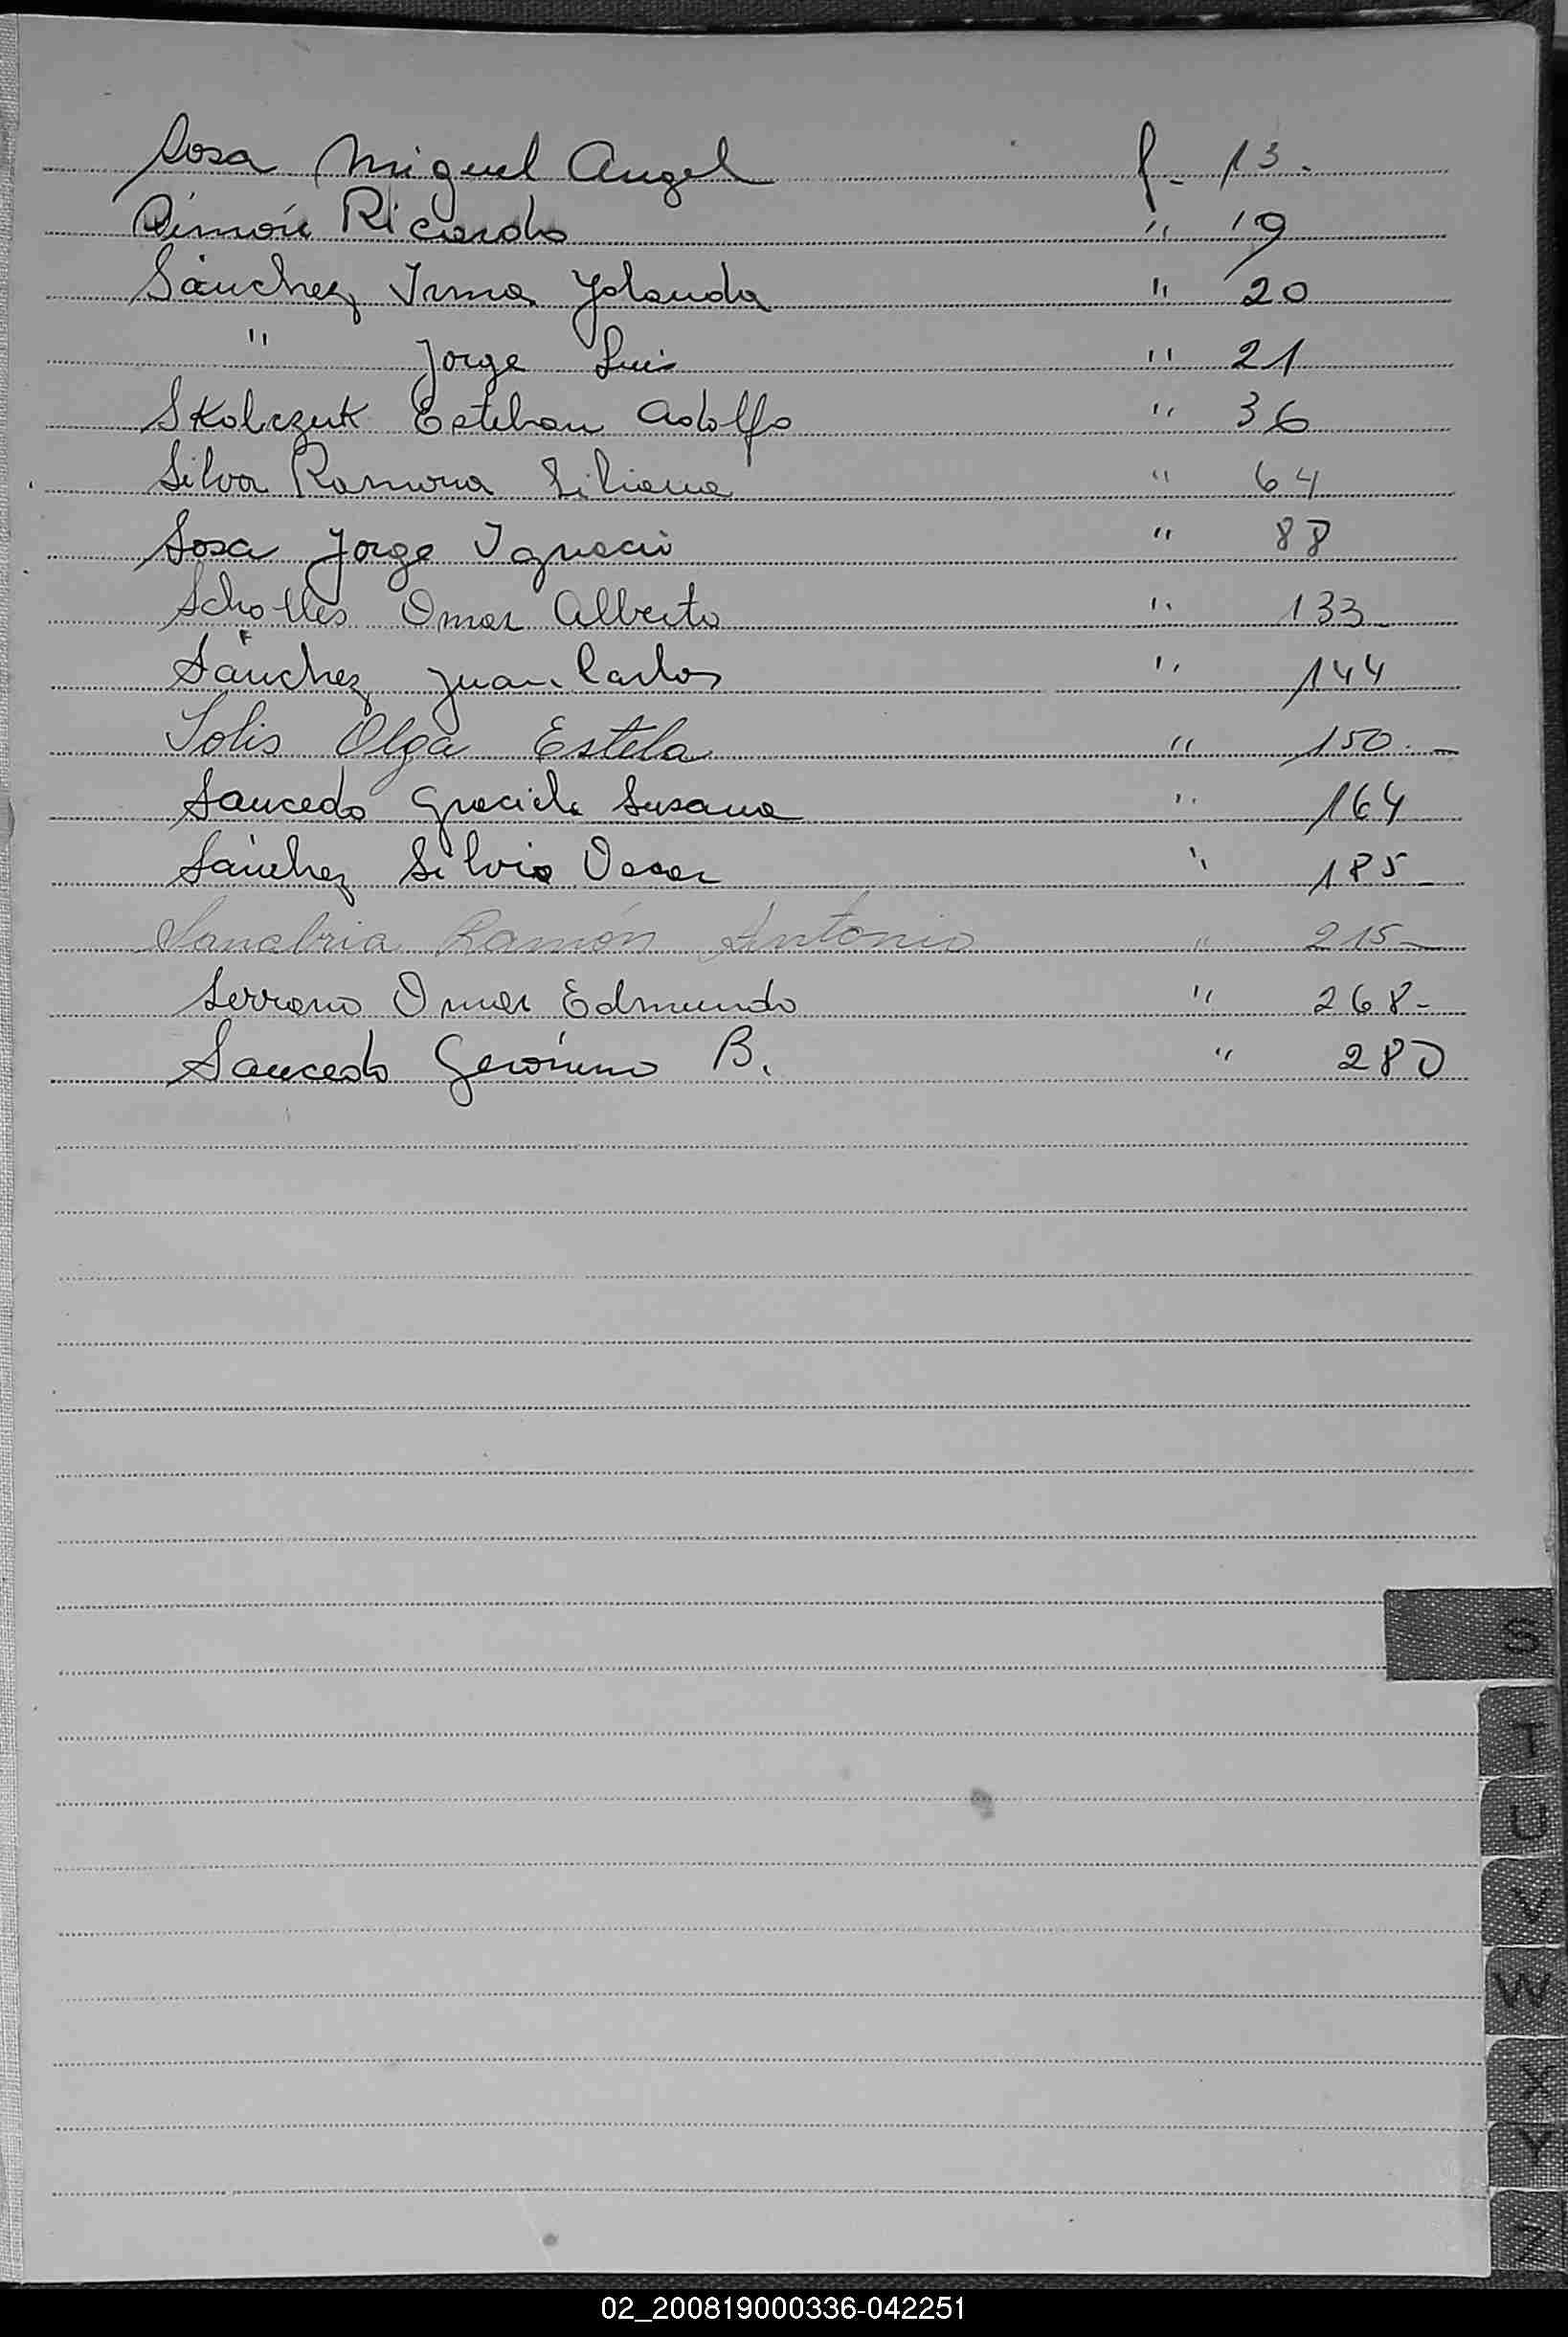 Sosa Miguel Angel f. 13.
Simón Ricardo " 19
Sánchez Irma Yolanda " 20
" Jorge Luis " 21
Skolczuk Esteban Adolfo " 36
Silva Ramona Liliana " 64
Sosa Jorge Ignacio " 88
Omar Alberto " 133-
Sánchez Juan Carlos " 144
Solis Olga Estela " 150.-
Saucedo Graciela Susana " 164
Sánchez Silvio Oscar " 185-
Sanabria Ramón Antonio " 215-
Serrano Omar Edmundo " 268-
Saucedo Gerónimo B. " 280
S
T
U
V
W
X
Y
Z
02_200819000336-042251